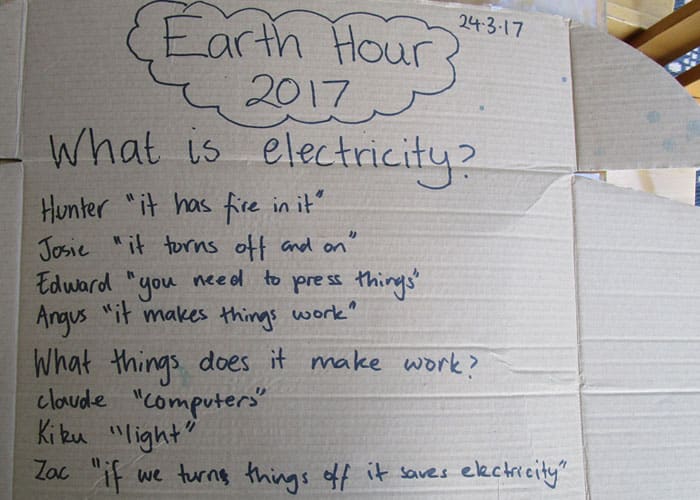 Earth Hour
2017
24.3.17
What is electricity?
Hunter "it has fire in it"
Josie "it turns off and on"
Edward "you need to press things"
Angus "it makes things work"
What things does it make work?
claude "computers"
Kiku "light"
Zac "if we turns things off it saves electricity"